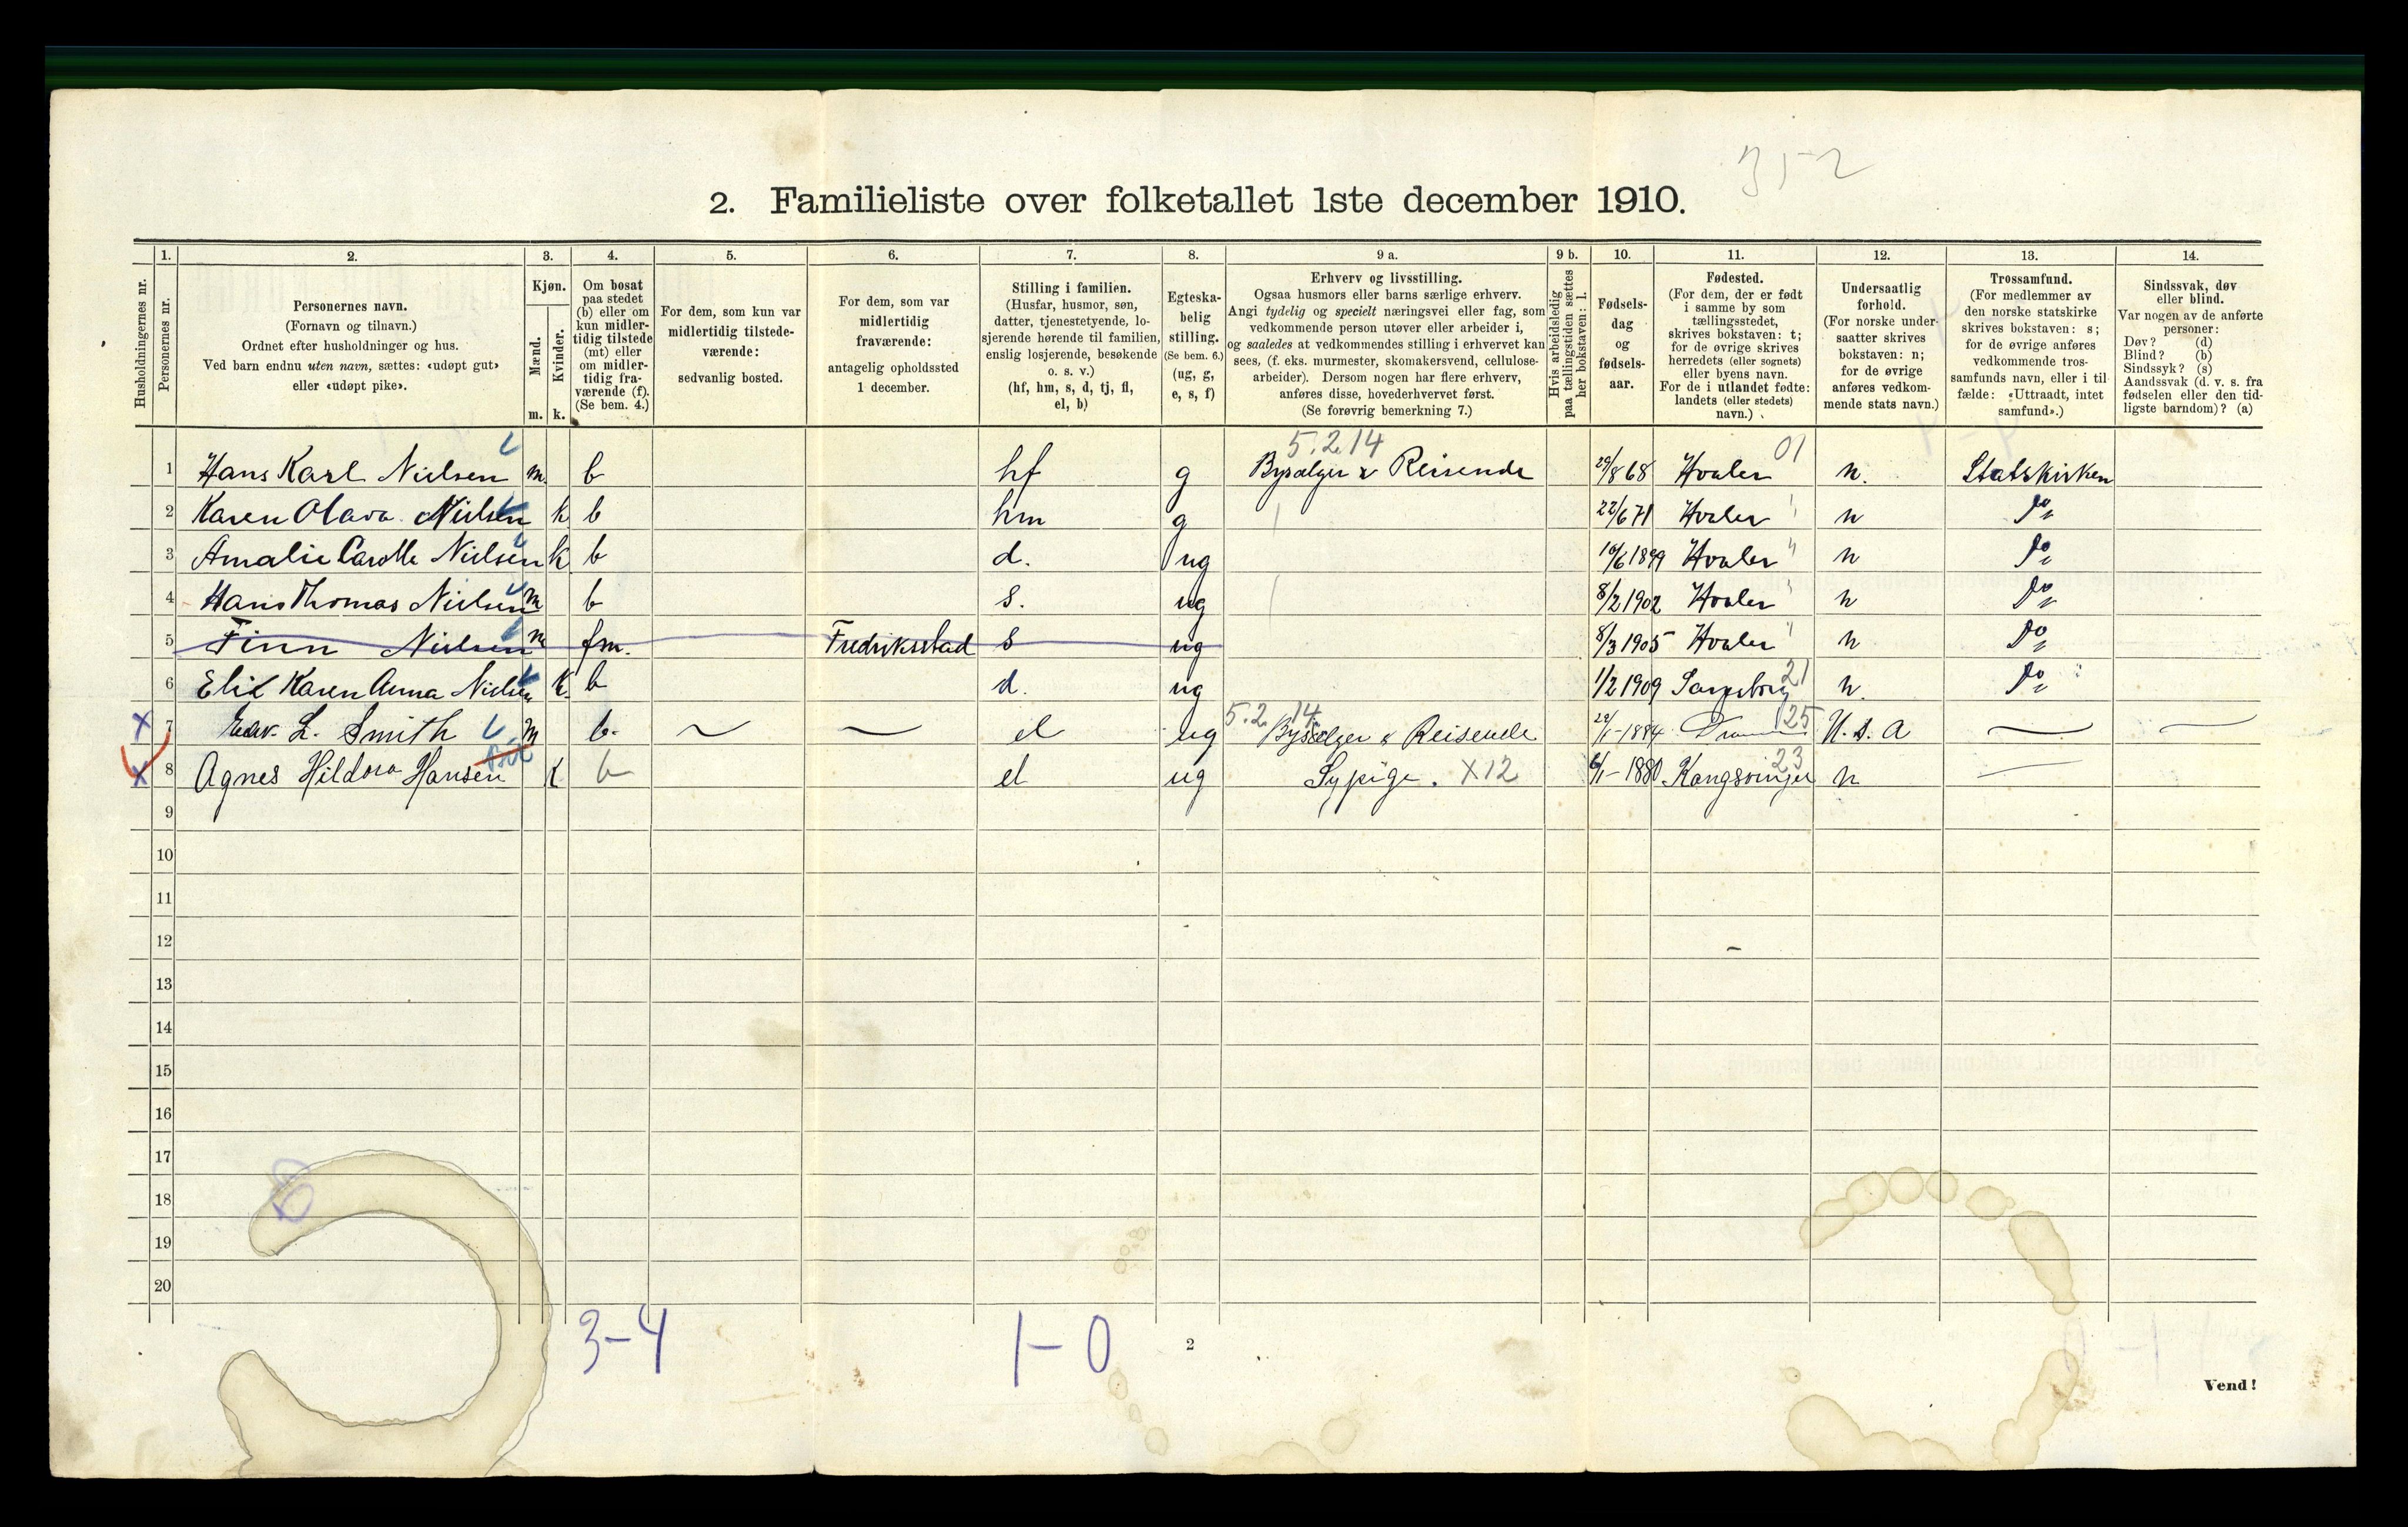 352
2. Familieliste over folketallet 1ste december 1910.
Husholdningernes nr.
1. Personernes nr.
2. Personernes navn.
(Fornavn og tilnavn.)
Ordnet efter husholdninger og hus.
Ved barn endnu uten navn, sættes: «udøpt gut»
eller «udøpt pike».
3. Kjøn.
Mænd. m.
Kvinder. k.
4. Om bosat
paa stedet
(b) eller om
kun midler-
tidig tilstede
(mt) eller
om midler-
tidig fra-
værende (f).
(Se bem. 4.)
5. For dem, som kun var
midlertidig tilstede-
værende:
sedvanlig bosted.
6. For dem, som var
midlertidig
fraværende:
antagelig opholdssted
1 december.
7. Stilling i familien.
(Husfar, husmor, søn,
datter, tjenestetyende, lo-
sjerende hørende til familien,
enslig losjerende, besøkende
o. s. v.)
(hf, hm, s, d, tj, fl,
el, b)
8. Egteska-
belig
stilling.
(Se bem. 6.)
(ug, g,
e, s, f)
9 a. Erhverv og livsstilling.
Ogsaa husmors eller barns særlige erhverv.
Angi tydelig og specielt næringsvei eller fag, som
vedkommende person utøver eller arbeider i,
og saaledes at vedkommendes stilling i erhvervet kan
sees, (f. eks. murmester, skomakersvend, cellulose-
arbeider). Dersom nogen har flere erhverv,
anføres disse, hovederhvervet først.
(Se forøvrig bemerkning 7.)
9 b. Hvis arbeidsledig
paa tællingstiden sættes
her bokstaven: l.
10. Fødsels-
dag
og
fødsels-
aar.
11. Fødested.
(For dem, der er født
i samme by som
tællingsstedet,
skrives bokstaven: t;
for de øvrige skrives
herredets (eller sognets)
eller byens navn.
For de i utlandet fødte:
landets (eller stedets)
navn.)
12. Undersaatlig
forhold.
(For norske under-
saatter skrives
bokstaven: n;
for de øvrige
anføres vedkom-
mende stats navn.)
13. Trossamfund.
(For medlemmer av
den norske statskirke
skrives bokstaven: s;
for de øvrige anføres
vedkommende tros-
samfunds navn, eller i til-
fælde: «Uttraadt, intet
samfund».)
14. Sindssvak, døv
eller blind.
Var nogen av de anførte
personer:
Døv? (d)
Blind? (b)
Sindssyk? (s)
Aandssvak (d. v. s. fra
fødselen eller den tid-
ligste barndom)? (a)
5.2.14 01
1 Hans Karl Nielsen m. b hf g Bysælger & Reisende 29/8 68 Hvaler n. Statskirken
2 Karen Olava Nielsen k b hm g 22/6 71 Hvaler " n Do "
3 Amalie Carolle Nielsen k b d. ug 10/6 1899 Hvaler " n Do "
4 Hans Thomas Nielsen m b s. ug 8/2 1902 Hvaler " n Do "
5 Finn Nielsen m fm. Fredriksstad s ug 8/3 1905 Hvaler " n Do "
6 Elis Karen Anna Nielsen k. b d. ug 1/2 1909 Sarpsborg 21 n. Do "
5.2.14 25
X 7 Edv. L. Smith m b. el ug Bysælger & Reisende 1884 U.S.A
X 8 Agnes Hildora Hansen k b el ug Sypige. X12 6/1-1880 Kongsvinger 23 n
9
10
11
12
13
14
15
16
17
18
19
20
8
3-4 1-0
2
Vend!